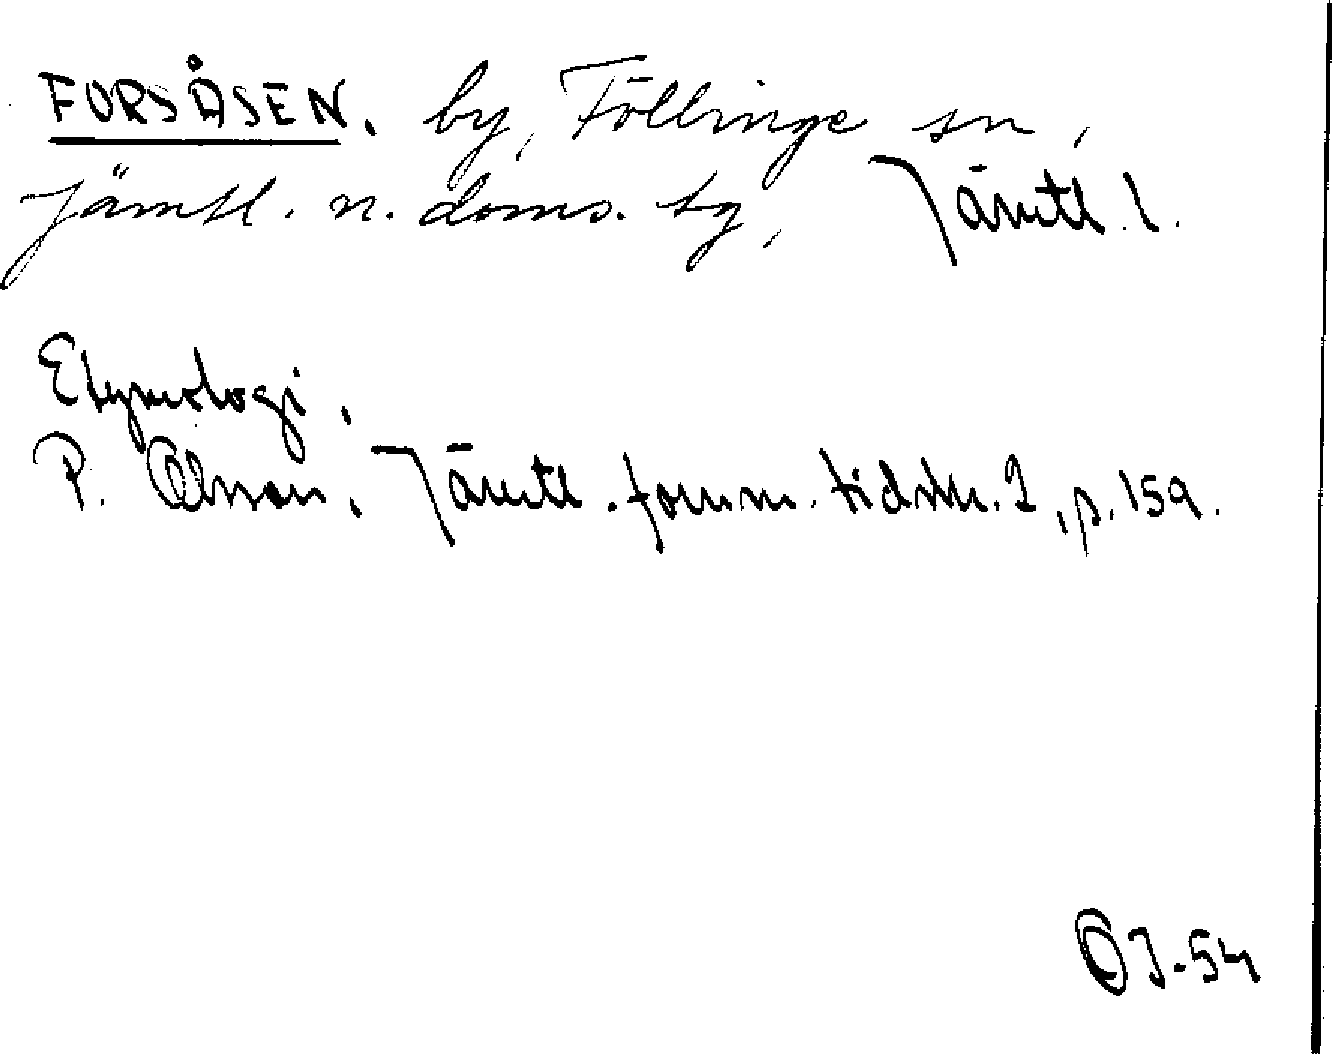 FORSÅSEN, by, Föllinge sn,
Jämtl. n. doms. tg, Jämtl. l.
Etymologi,
P. Olsson, Jämtl. fornm. tidskr. 2, p. 159.
ÖJ-54